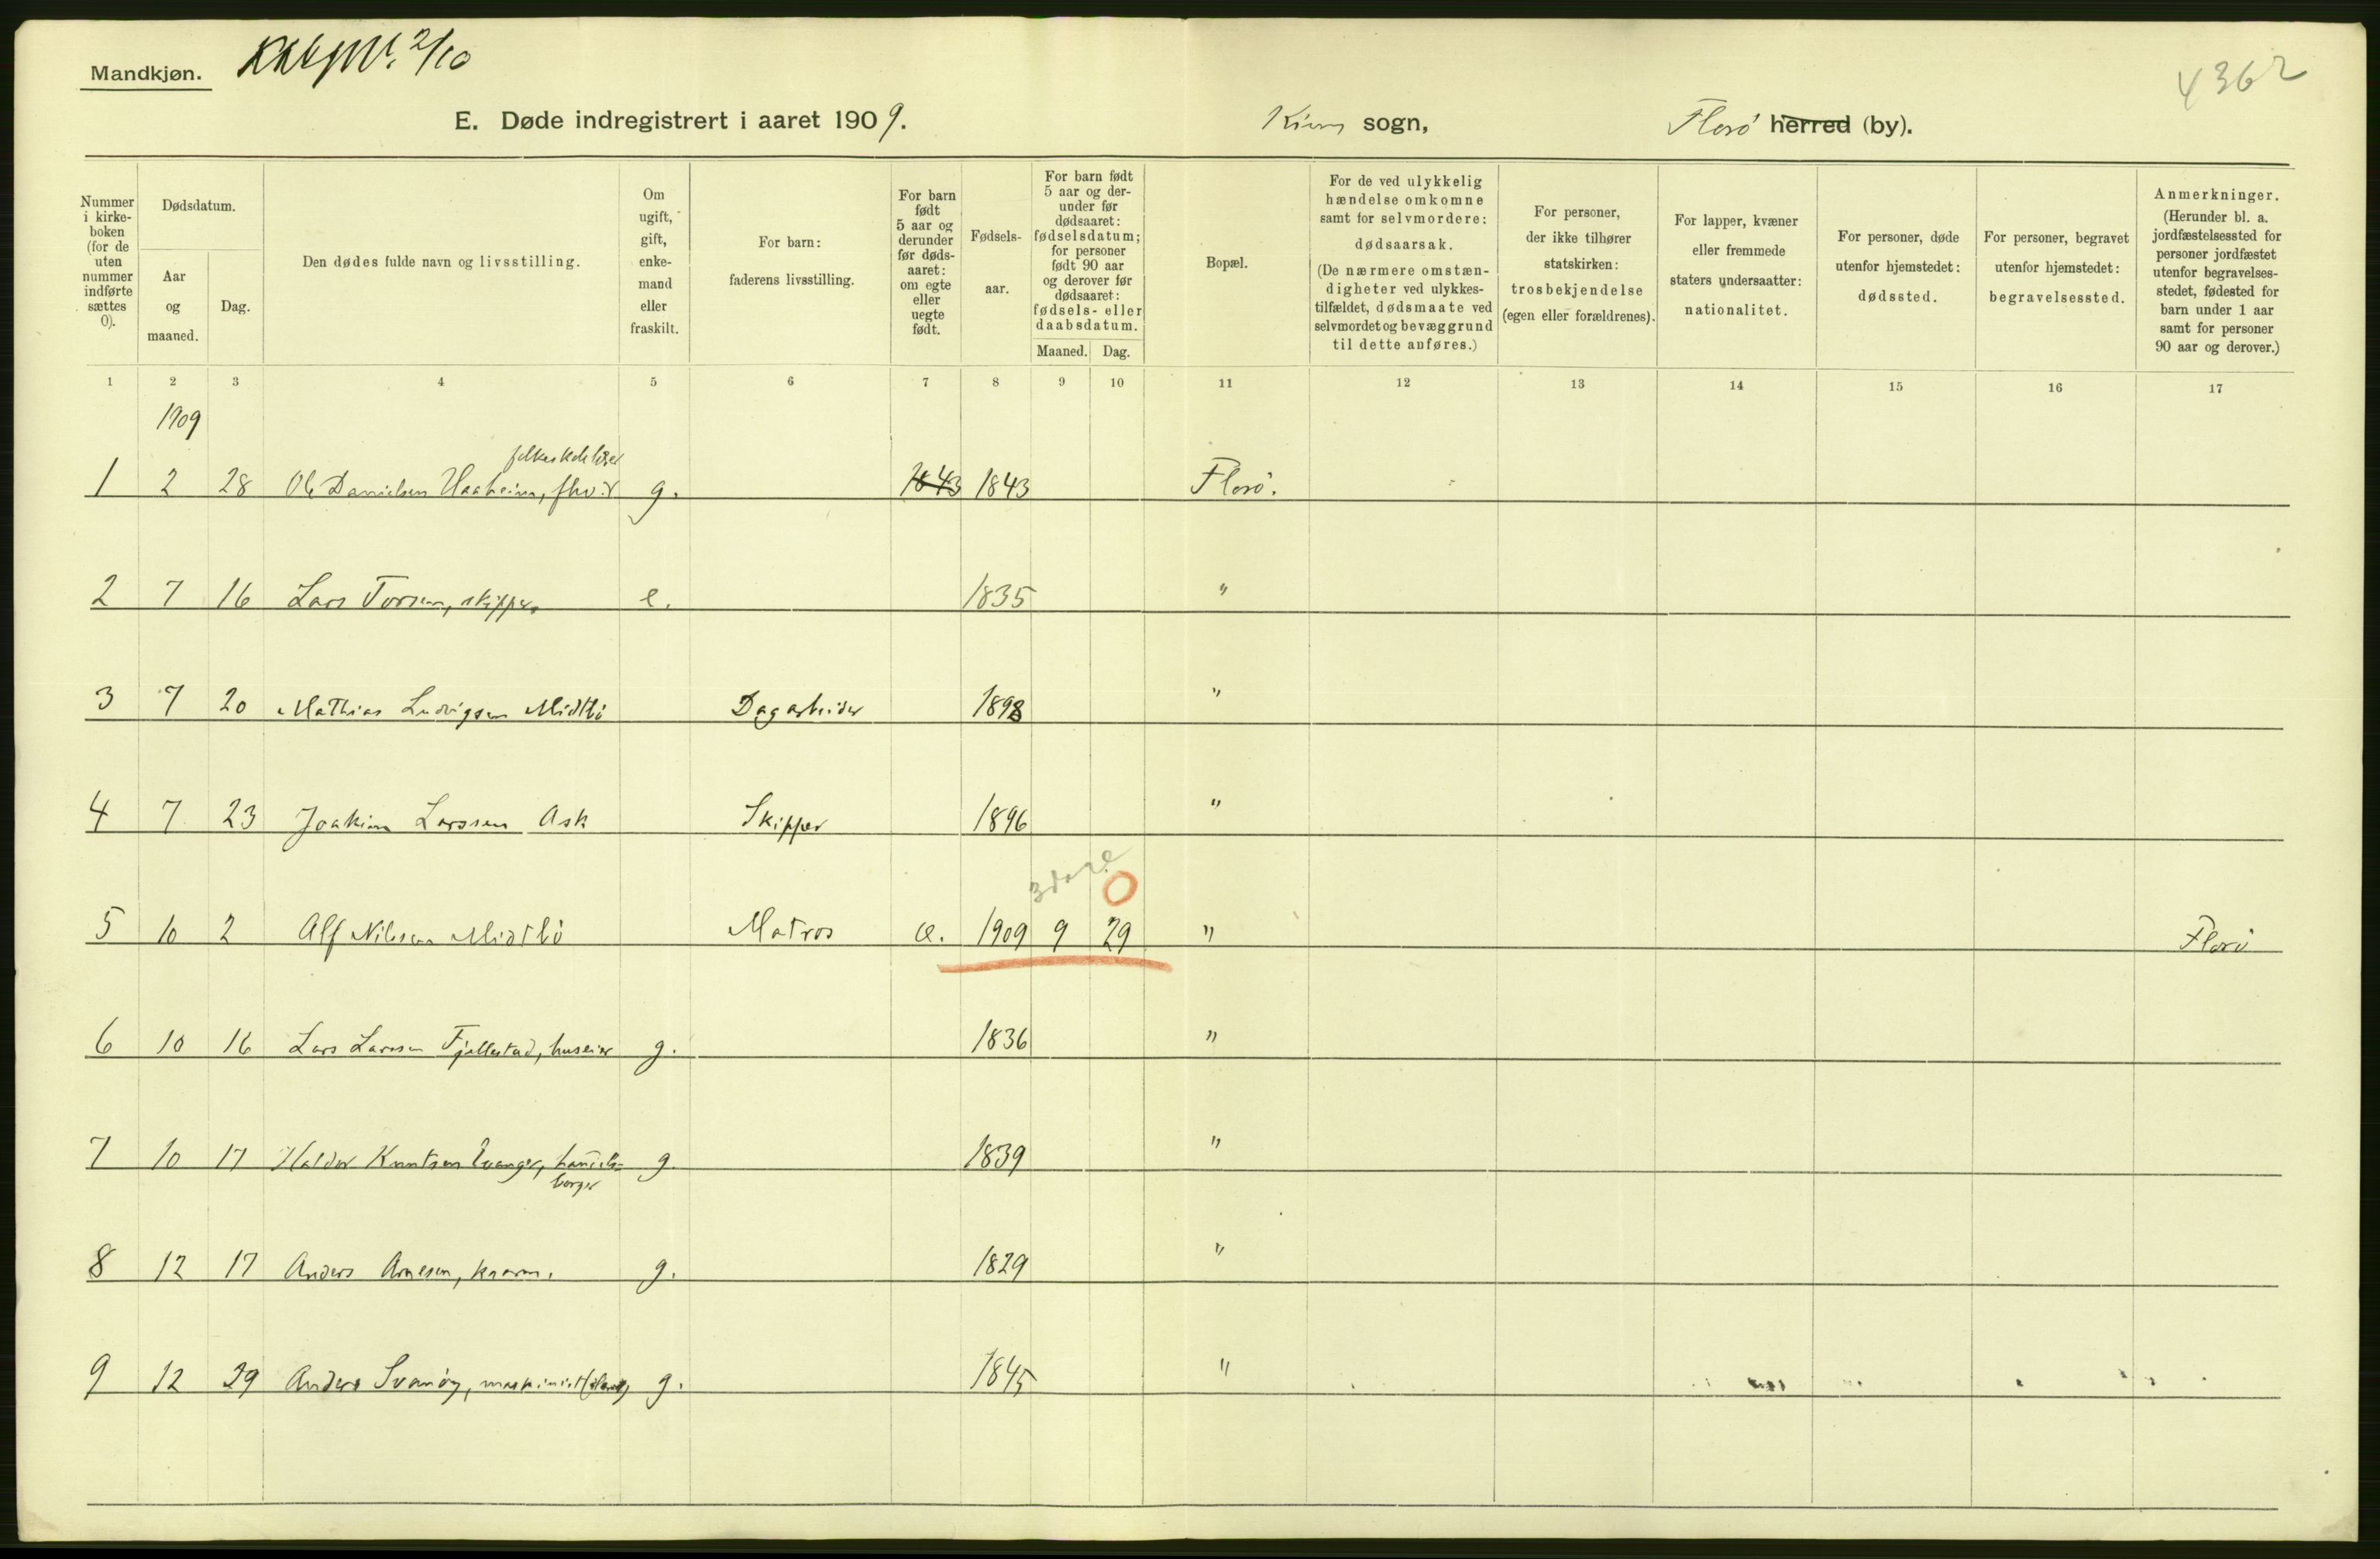 Mandkjøn.
2/10
4362
E. Døde indregistrert i aaret 1909. Kinn sogn, Florö herred (by).
Nummer i kirkeboken (for de uten nummer indførte sættes 0).
Dødsdatum.
Aar og maaned.
Dag.
Den dødes fulde navn og livsstilling.
Om ugift, gift, enkemand eller fraskilt.
For barn: faderens livsstilling.
For barn født 5 aar og derunder før dødsaaret: om egte eller uegte født.
Fødselsaar.
For barn født 5 aar og derunder før dødsaaret: fødselsdatum; for personer født 90 aar og derover før dødsaaret: fødsels- eller daabsdatum.
Maaned. Dag.
Bopæl.
For de ved ulykkelig hændelse omkomne samt for selvmordere: dødsaarsak. (De nærmere omstændigheter ved ulykkestilfældet, dødsmaate ved selvmordet og bevæggrund til dette anføres.)
For personer, der ikke tilhører statskirken: trosbekjendelse (egen eller forældrenes).
For lapper, kvæner eller fremmede staters undersaatter: nationalitet.
For personer, døde utenfor hjemstedet: dødssted.
For personer, begravet utenfor hjemstedet: begravelsessted.
Anmerkninger. (Herunder bl. a. jordfæstelsessted for personer jordfæstet utenfor begravelsesstedet, fødested for barn under 1 aar samt for personer 90 aar og derover.)
1 2 3 4 5 6 7 8 9 10 11 12 13 14 15 16 17
1909
1 2 28 Ole Danielsen Haaheim, fhv. g. 1843 1843 Florö.
2 7 16 Lars Torsen, skipper e. 1835 "
3 7 20 Mathias Ludvigsen Midtbö Dagarbeider 1898 "
4 7 23 Joakim Larssen Ask Skipper 1896 "
3 dage 0
5 10 2 Alf Nilsen Midtbö Matros e. 1909 9 29 " Florö
6 10 16 Lars Larssen Fjellestad, huseier g. 1836 "
7 10 17 Haldor Knutsen Evanger, handels- g. 1839 "
borger
8 12 17 Anders Arnesen, kaarm. g. 1829 "
9 12 29 Anders Svanöy, maskinist g. 1845 "